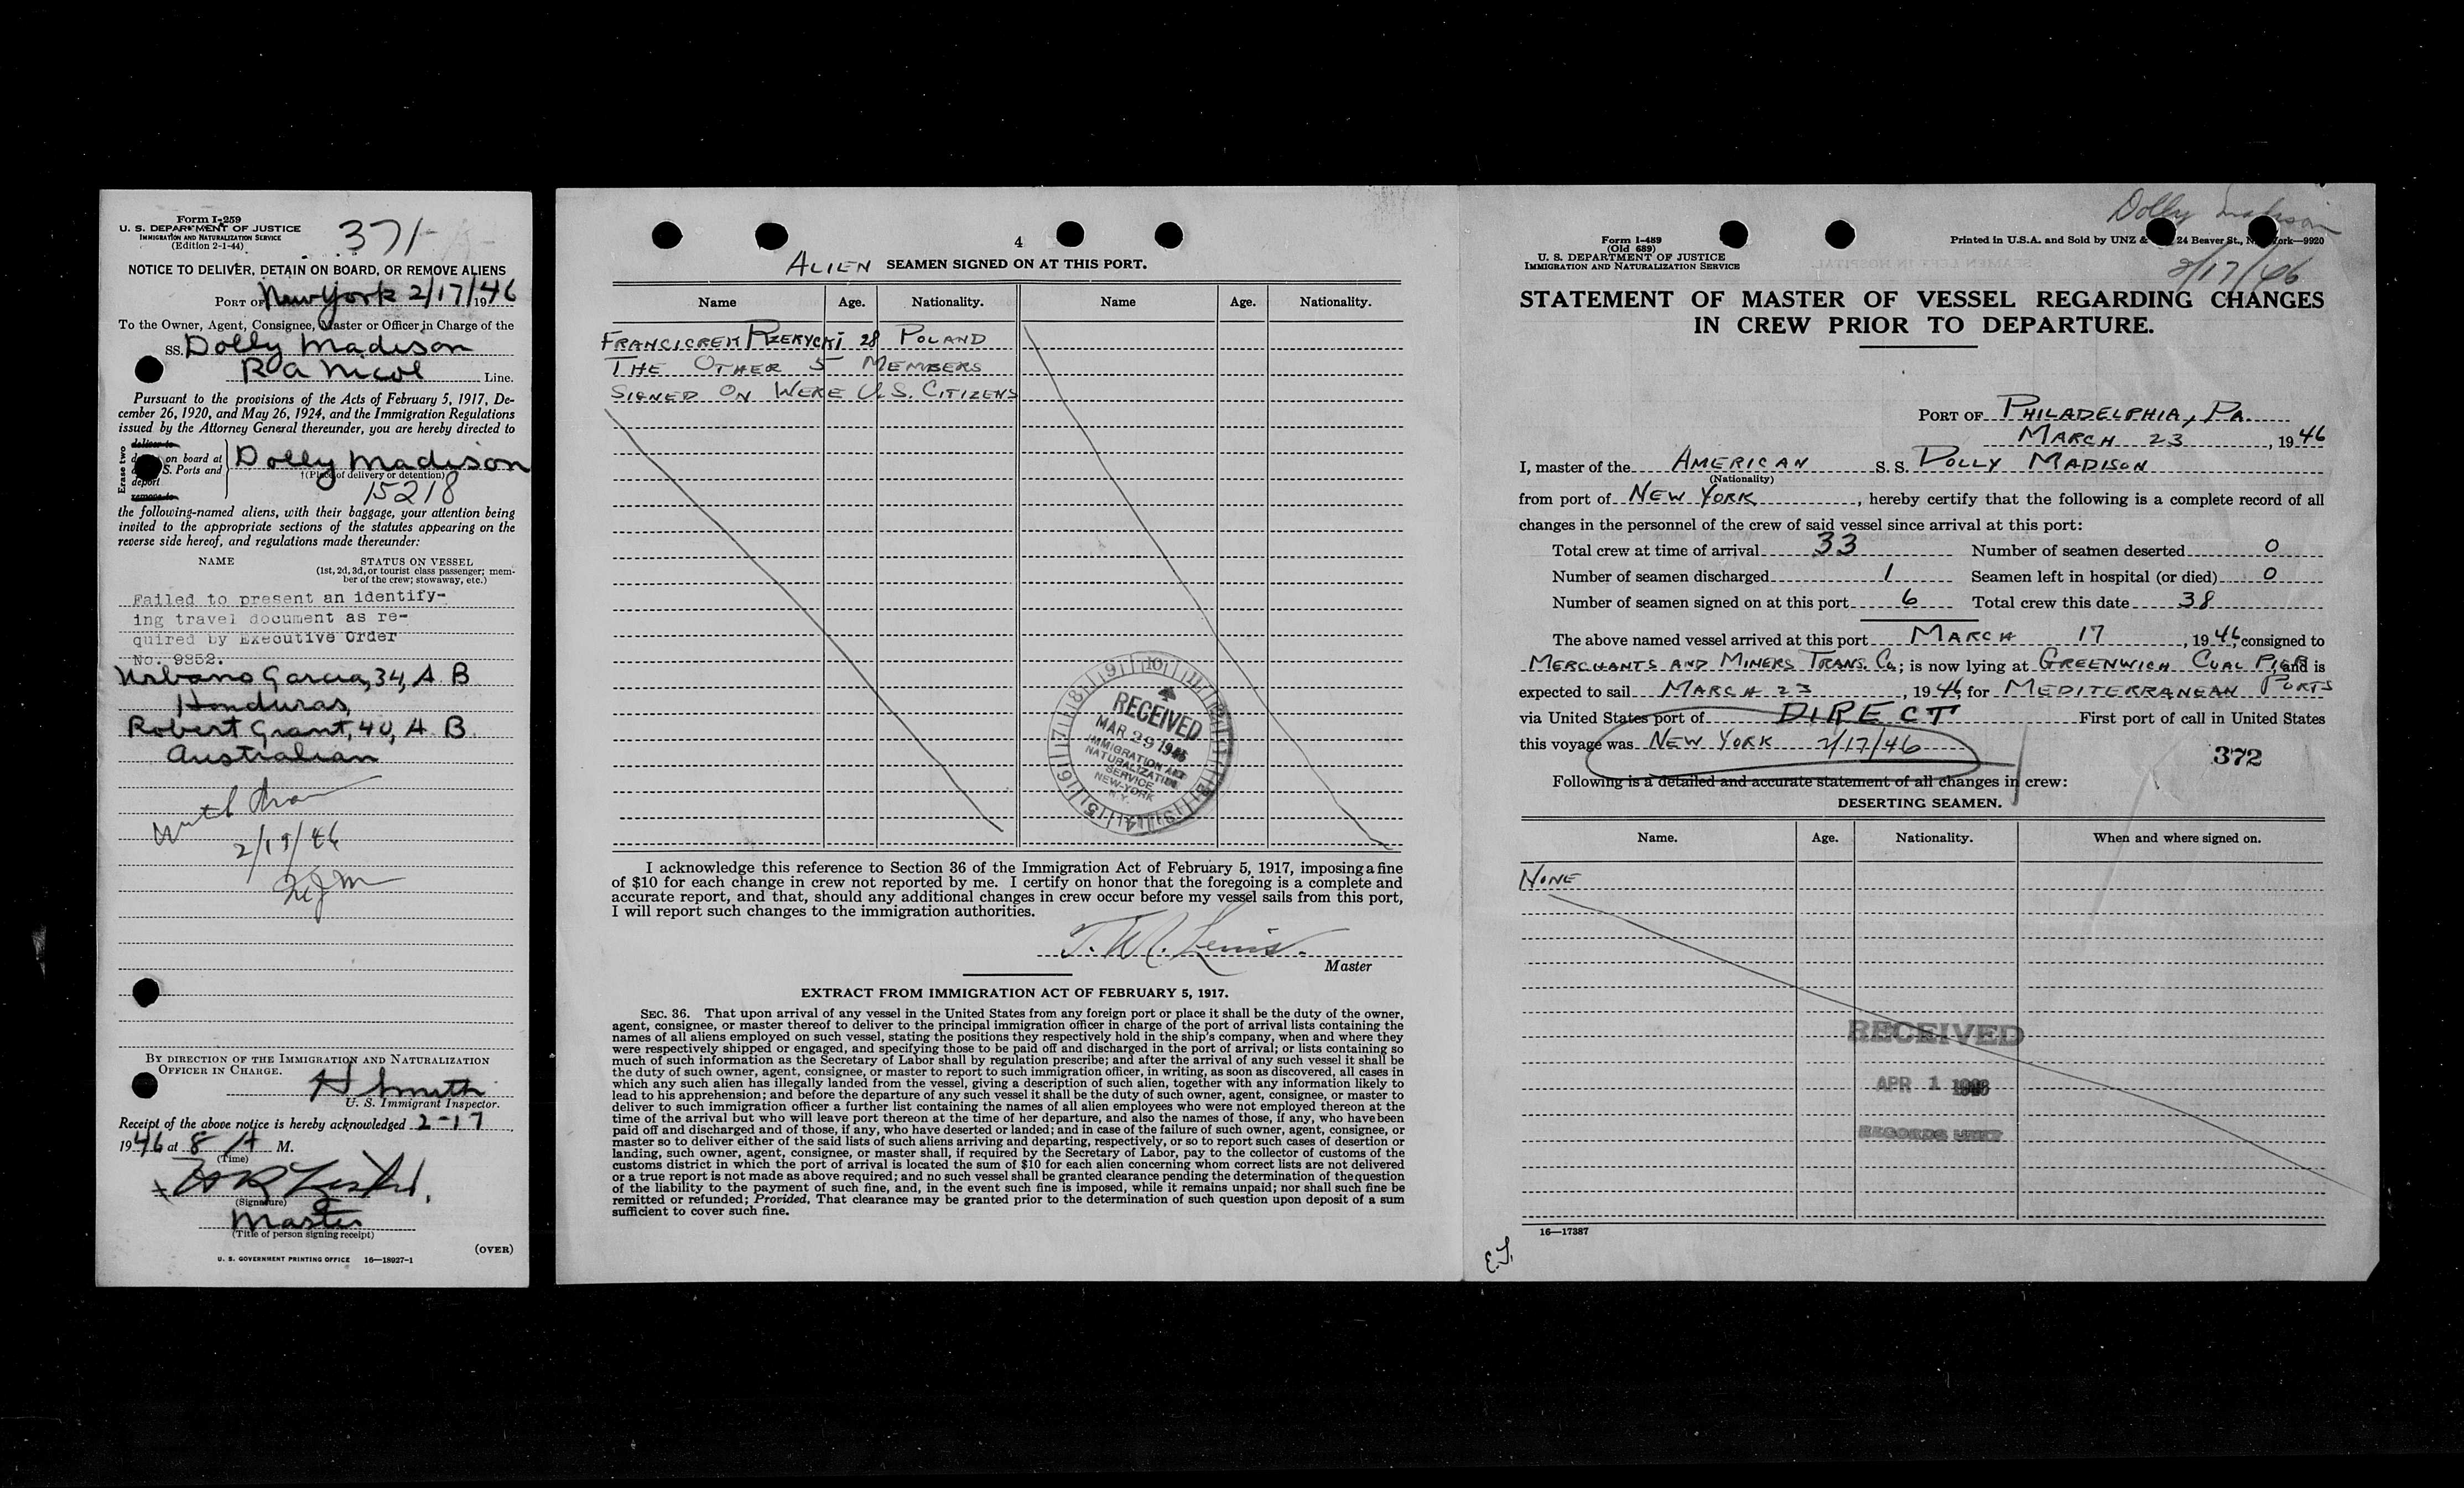 Form I-259
U. S. DEPARTMENT OF JUSTICE
IMMIGRATION AND NATURALIZATION SERVICE
(Edition 2-1-44)
371
NOTICE TO DELIVER, DETAIN ON BOARD, OR REMOVE ALIENS
PORT OF New York 2/17/1946
To the Owner, Agent, Consignee, Master or Officer in Charge of the
SS. Dolly Madison
R A Nicol Line.
Pursuant to the provisions of the Acts of February 5, 1917, De-
cember 26, 1920, and May 26, 1924, and the Immigration Regulations
issued by the Attorney General thereunder, you are hereby directed to
Erase two
deliver to
on board at
S. Ports and
deport
remove to
Dolly Madison
†(Place of delivery or detention)
15218
the following-named aliens, with their baggage, your attention being
invited to the appropriate sections of the statutes appearing on the
reverse side hereof, and regulations made thereunder:
NAME STATUS ON VESSEL
(1st, 2d, 3d, or tourist class passenger; mem-
ber of the crew; stowaway, etc.)
Failed to present an identify-
ing travel document as re-
quired by Executive Order
No. 9352.
Urbano Garcia, 34, A B
Honduras,
Robert Grant, 40, A B.
Australian
2/19/46
BY DIRECTION OF THE IMMIGRATION AND NATURALIZATION
OFFICER IN CHARGE.
H Smith
U. S. Immigrant Inspector.
Receipt of the above notice is hereby acknowledged 2-17
1946 at 8 A M.
(Time)
(Signature)
Master
(Title of person signing receipt)
(OVER)
U. S. GOVERNMENT PRINTING OFFICE 16—18927-1
4
ALIEN SEAMEN SIGNED ON AT THIS PORT.
Name Age. Nationality. Name Age. Nationality.
FRANCICREK RZERYCKI 28 POLAND
THE OTHER 5 MEMBERS
SIGNED ON WERE U.S. CITIZENS
RECEIVED
MAR 29 1946
IMMIGRATION AND
NATURALIZATION
SERVICE
NEW-YORK
N.Y.
I acknowledge this reference to Section 36 of the Immigration Act of February 5, 1917, imposing a fine
of $10 for each change in crew not reported by me. I certify on honor that the foregoing is a complete and
accurate report, and that, should any additional changes in crew occur before my vessel sails from this port,
I will report such changes to the immigration authorities.
T. W. Lewis.
Master
EXTRACT FROM IMMIGRATION ACT OF FEBRUARY 5, 1917.
SEC. 36. That upon arrival of any vessel in the United States from any foreign port or place it shall be the duty of the owner,
agent, consignee, or master thereof to deliver to the principal immigration officer in charge of the port of arrival lists containing the
names of all aliens employed on such vessel, stating the positions they respectively hold in the ship's company, when and where they
were respectively shipped or engaged, and specifying those to be paid off and discharged in the port of arrival; or lists containing so
much of such information as the Secretary of Labor shall by regulation prescribe; and after the arrival of any such vessel it shall be
the duty of such owner, agent, consignee, or master to report to such immigration officer, in writing, as soon as discovered, all cases in
which any such alien has illegally landed from the vessel, giving a description of such alien, together with any information likely to
lead to his apprehension; and before the departure of any such vessel it shall be the duty of such owner, agent, consignee, or master to
deliver to such immigration officer a further list containing the names of all alien employees who were not employed thereon at the
time of the arrival but who will leave port thereon at the time of her departure, and also the names of those, if any, who have been
paid off and discharged and of those, if any, who have deserted or landed; and in case of the failure of such owner, agent, consignee, or
master so to deliver either of the said lists of such aliens arriving and departing, respectively, or so to report such cases of desertion or
landing, such owner, agent, consignee, or master shall, if required by the Secretary of Labor, pay to the collector of customs of the
customs district in which the port of arrival is located the sum of $10 for each alien concerning whom correct lists are not delivered
or a true report is not made as above required; and no such vessel shall be granted clearance pending the determination of the question
of the liability to the payment of such fine, and, in the event such fine is imposed, while it remains unpaid; nor shall such fine be
remitted or refunded; Provided, That clearance may be granted prior to the determination of such question upon deposit of a sum
sufficient to cover such fine.
Dolly Madison
2/17/46
Form I-489
(Old 689)
U. S. DEPARTMENT OF JUSTICE
IMMIGRATION AND NATURALIZATION SERVICE
Printed in U.S.A. and Sold by UNZ & 24 Beaver St., New York—9920
STATEMENT OF MASTER OF VESSEL REGARDING CHANGES
IN CREW PRIOR TO DEPARTURE.
PORT OF PHILADELPHIA, PA.
MARCH 23, 1946
I, master of the AMERICAN S. S. DOLLY MADISON
(Nationality)
from port of NEW YORK, hereby certify that the following is a complete record of all
changes in the personnel of the crew of said vessel since arrival at this port:
Total crew at time of arrival 33 Number of seamen deserted 0
Number of seamen discharged 1 Seamen left in hospital (or died) 0
Number of seamen signed on at this port 6 Total crew this date 38
The above named vessel arrived at this port MARCH 17, 1946, consigned to
MERCHANTS AND MINERS TRANS. CO.; is now lying at GREENWICH COAL PIER and is
expected to sail MARCH 23, 1946, for MEDITERRANEAN PORTS
via United States port of DIRECT First port of call in United States
this voyage was NEW YORK 2/17/46
372
Following is a detailed and accurate statement of all changes in crew:
DESERTING SEAMEN.
Name. Age. Nationality. When and where signed on.
NONE
RECEIVED
APR 1 1946
RECORDS UNIT
16—17387
E.T.